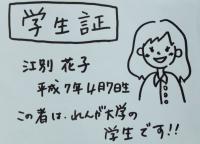 学生証
江別 花子
平成7年4月7日生
この者は、れんが大学の
学生です!!